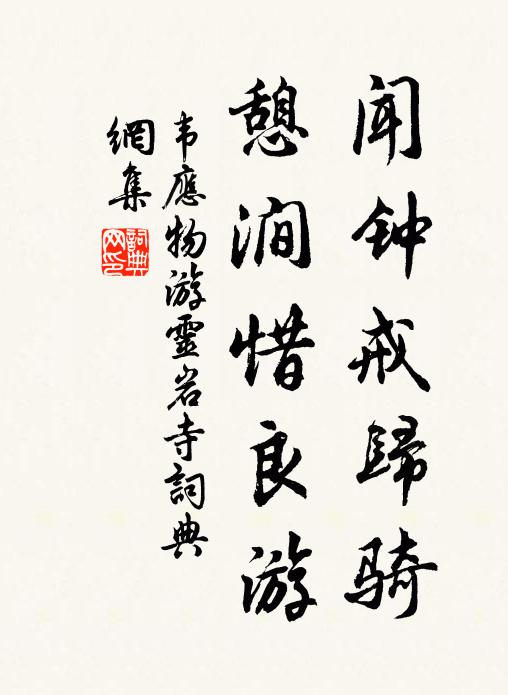 闻钟戒歸骑
憩澗惜良游
韦應物游靈岩寺詞典
網集
詞典
网印